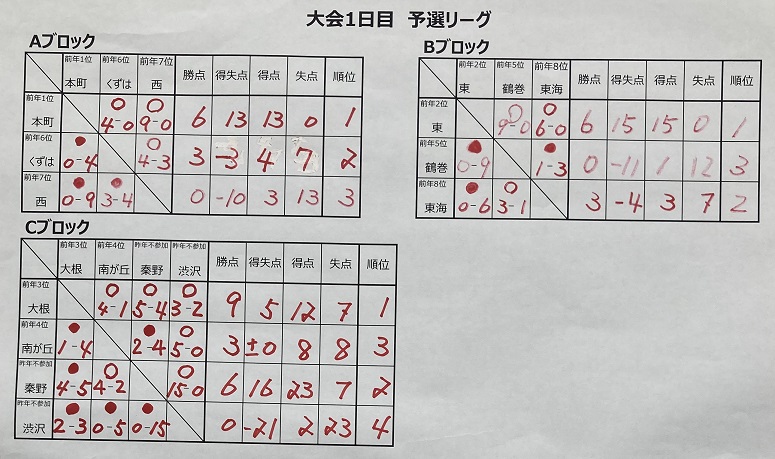 大会1日目 予選リーグ
Aブロック
前年1位 前年6位 前年7位
本町 くずは 西 勝点 得失点 得点 失点 順位
前年1位
本町 4-0 9-0 6 13 13 0 1
前年6位
くずは 0-4 4-3 3 -3 4 7 2
前年7位
西 0-9 3-4 0 -10 3 13 3
Bブロック
前年2位 前年5位 前年8位
東 鶴巻 東海 勝点 得失点 得点 失点 順位
前年2位
東 9-0 6-0 6 15 15 0 1
前年5位
鶴巻 0-9 1-3 0 -11 1 12 3
前年8位
東海 0-6 3-1 3 -4 3 7 2
Cブロック
前年3位 前年4位 昨年不参加 昨年不参加
大根 南が丘 秦野 渋沢 勝点 得失点 得点 失点 順位
前年3位
大根 4-1 5-4 3-2 9 5 12 7 1
前年4位
南が丘 1-4 2-4 5-0 3 ±0 8 8 3
昨年不参加
秦野 4-5 4-2 15-0 6 16 23 7 2
昨年不参加
渋沢 2-3 0-5 0-15 0 -21 2 23 4